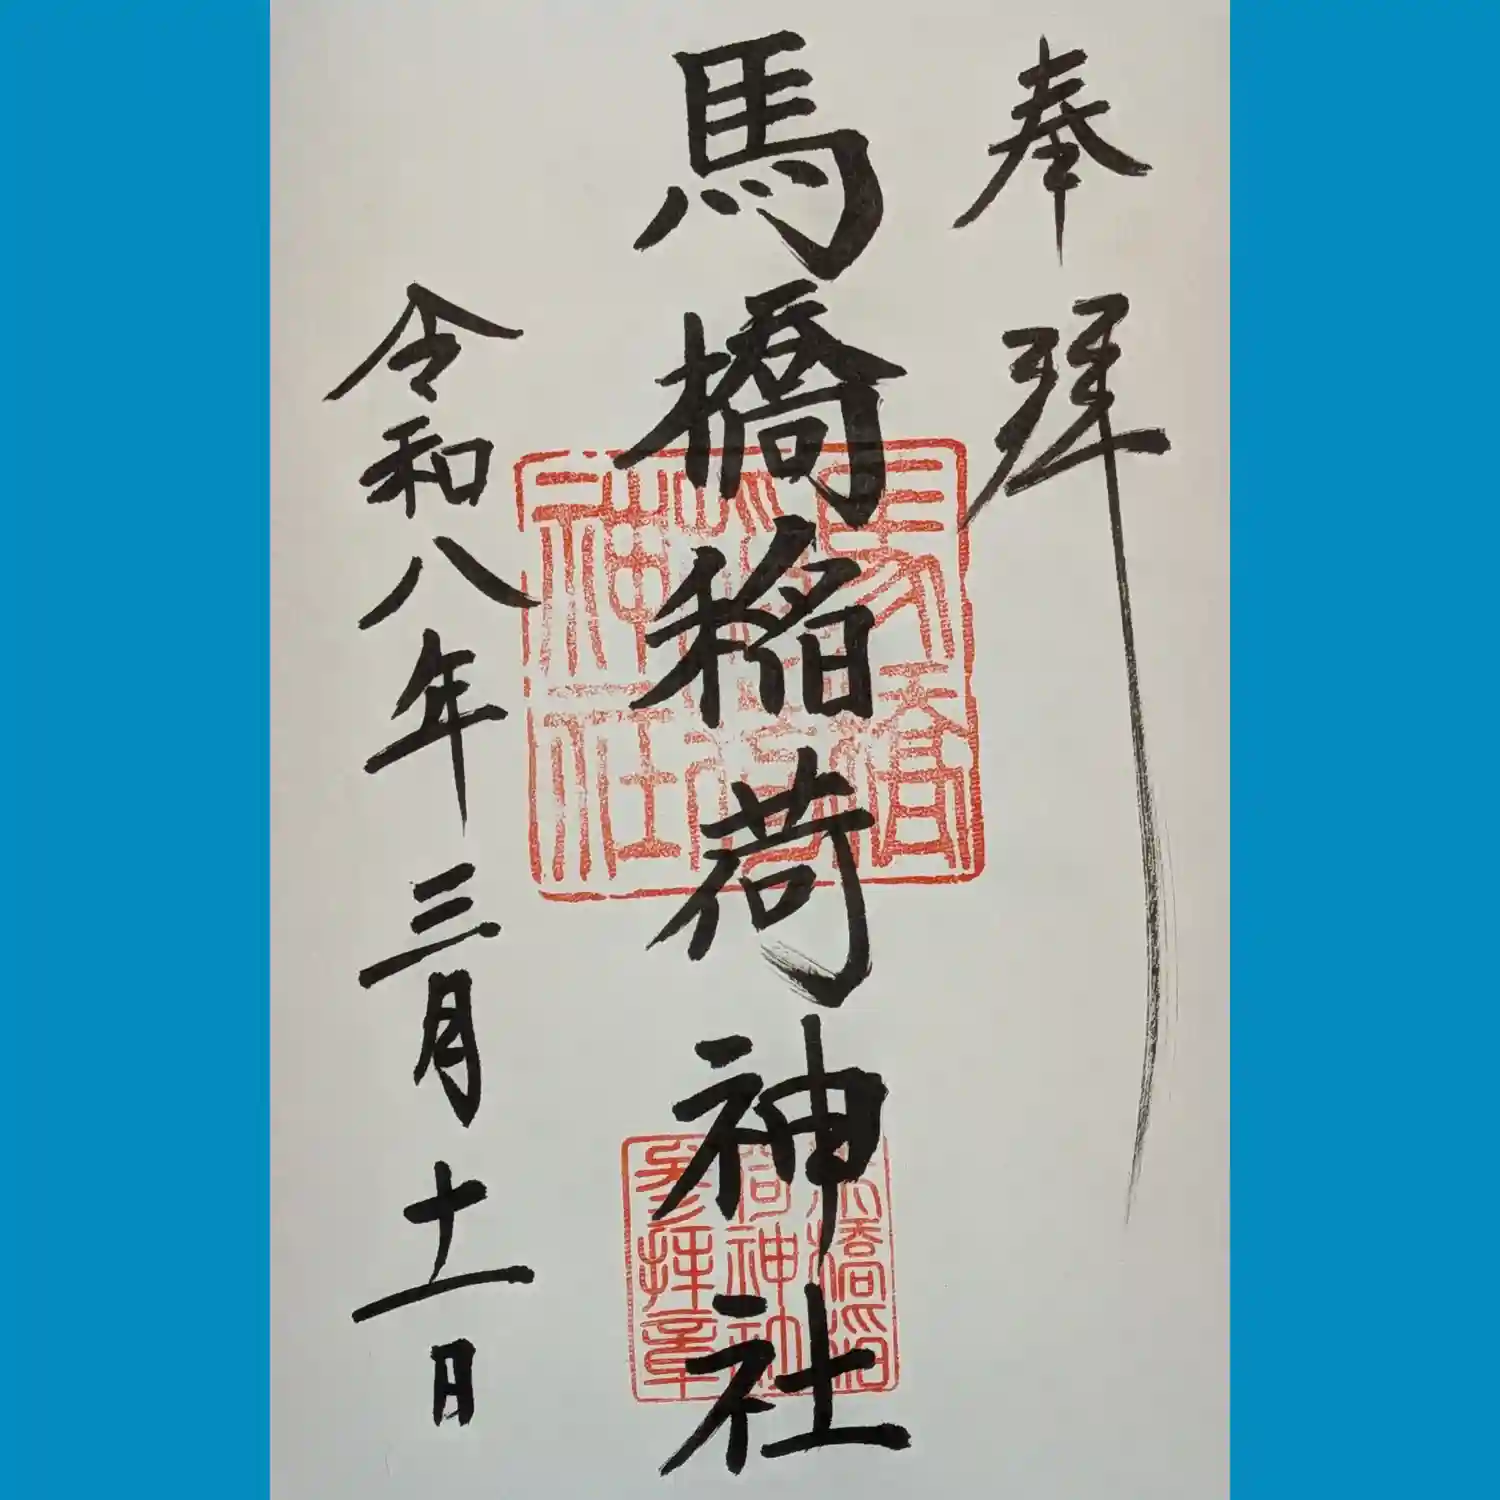 奉拝
馬橋稲荷神社
令和八年三月十二日
馬橋
稲荷
神社
馬橋稲
荷神社
参拝章